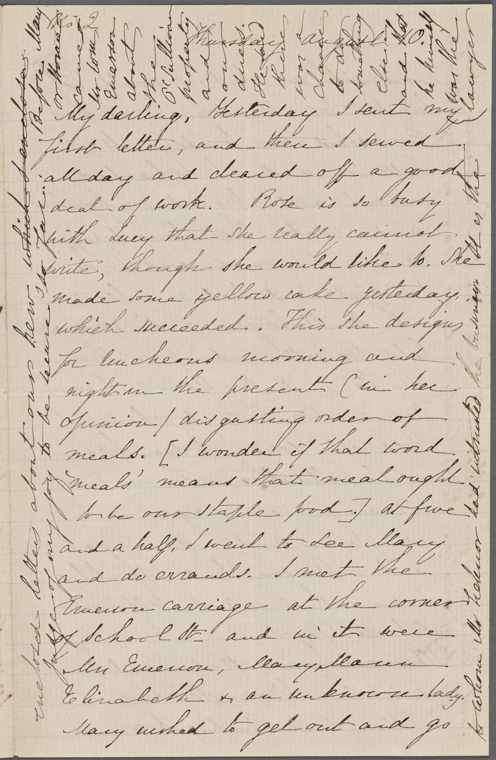 No 2
Thursday August 10.
My darling, Yesterday I sent my
first letter, and then I sewed
all day and cleared off a good
deal of work. Rose is so busy
with Lucy that she really cannot
write, though she would like to. She
made some yellow cake yesterday
which succeeded. This she designs
for luncheons morning and
night in the present (in her
opinion) disgusting order of
meals. [I wonder if that word
'meals' means that meal ought
to be our staple food.] At five
and a half, I went to see Mary
and do errands. I met the
Emerson carriage at the corner
of School St. and in it were
Mrs Emerson, Mary Mann
Elizabeth & an unknown lady.
Mary wished to get out and go
to whom Mr had the business as the
lawyer
was the
he himself
and
something
to
there
and
property
the
about
Emerson
Mr
came
or Horace
Before May
enclosed letters about our new
of my joy to be sure